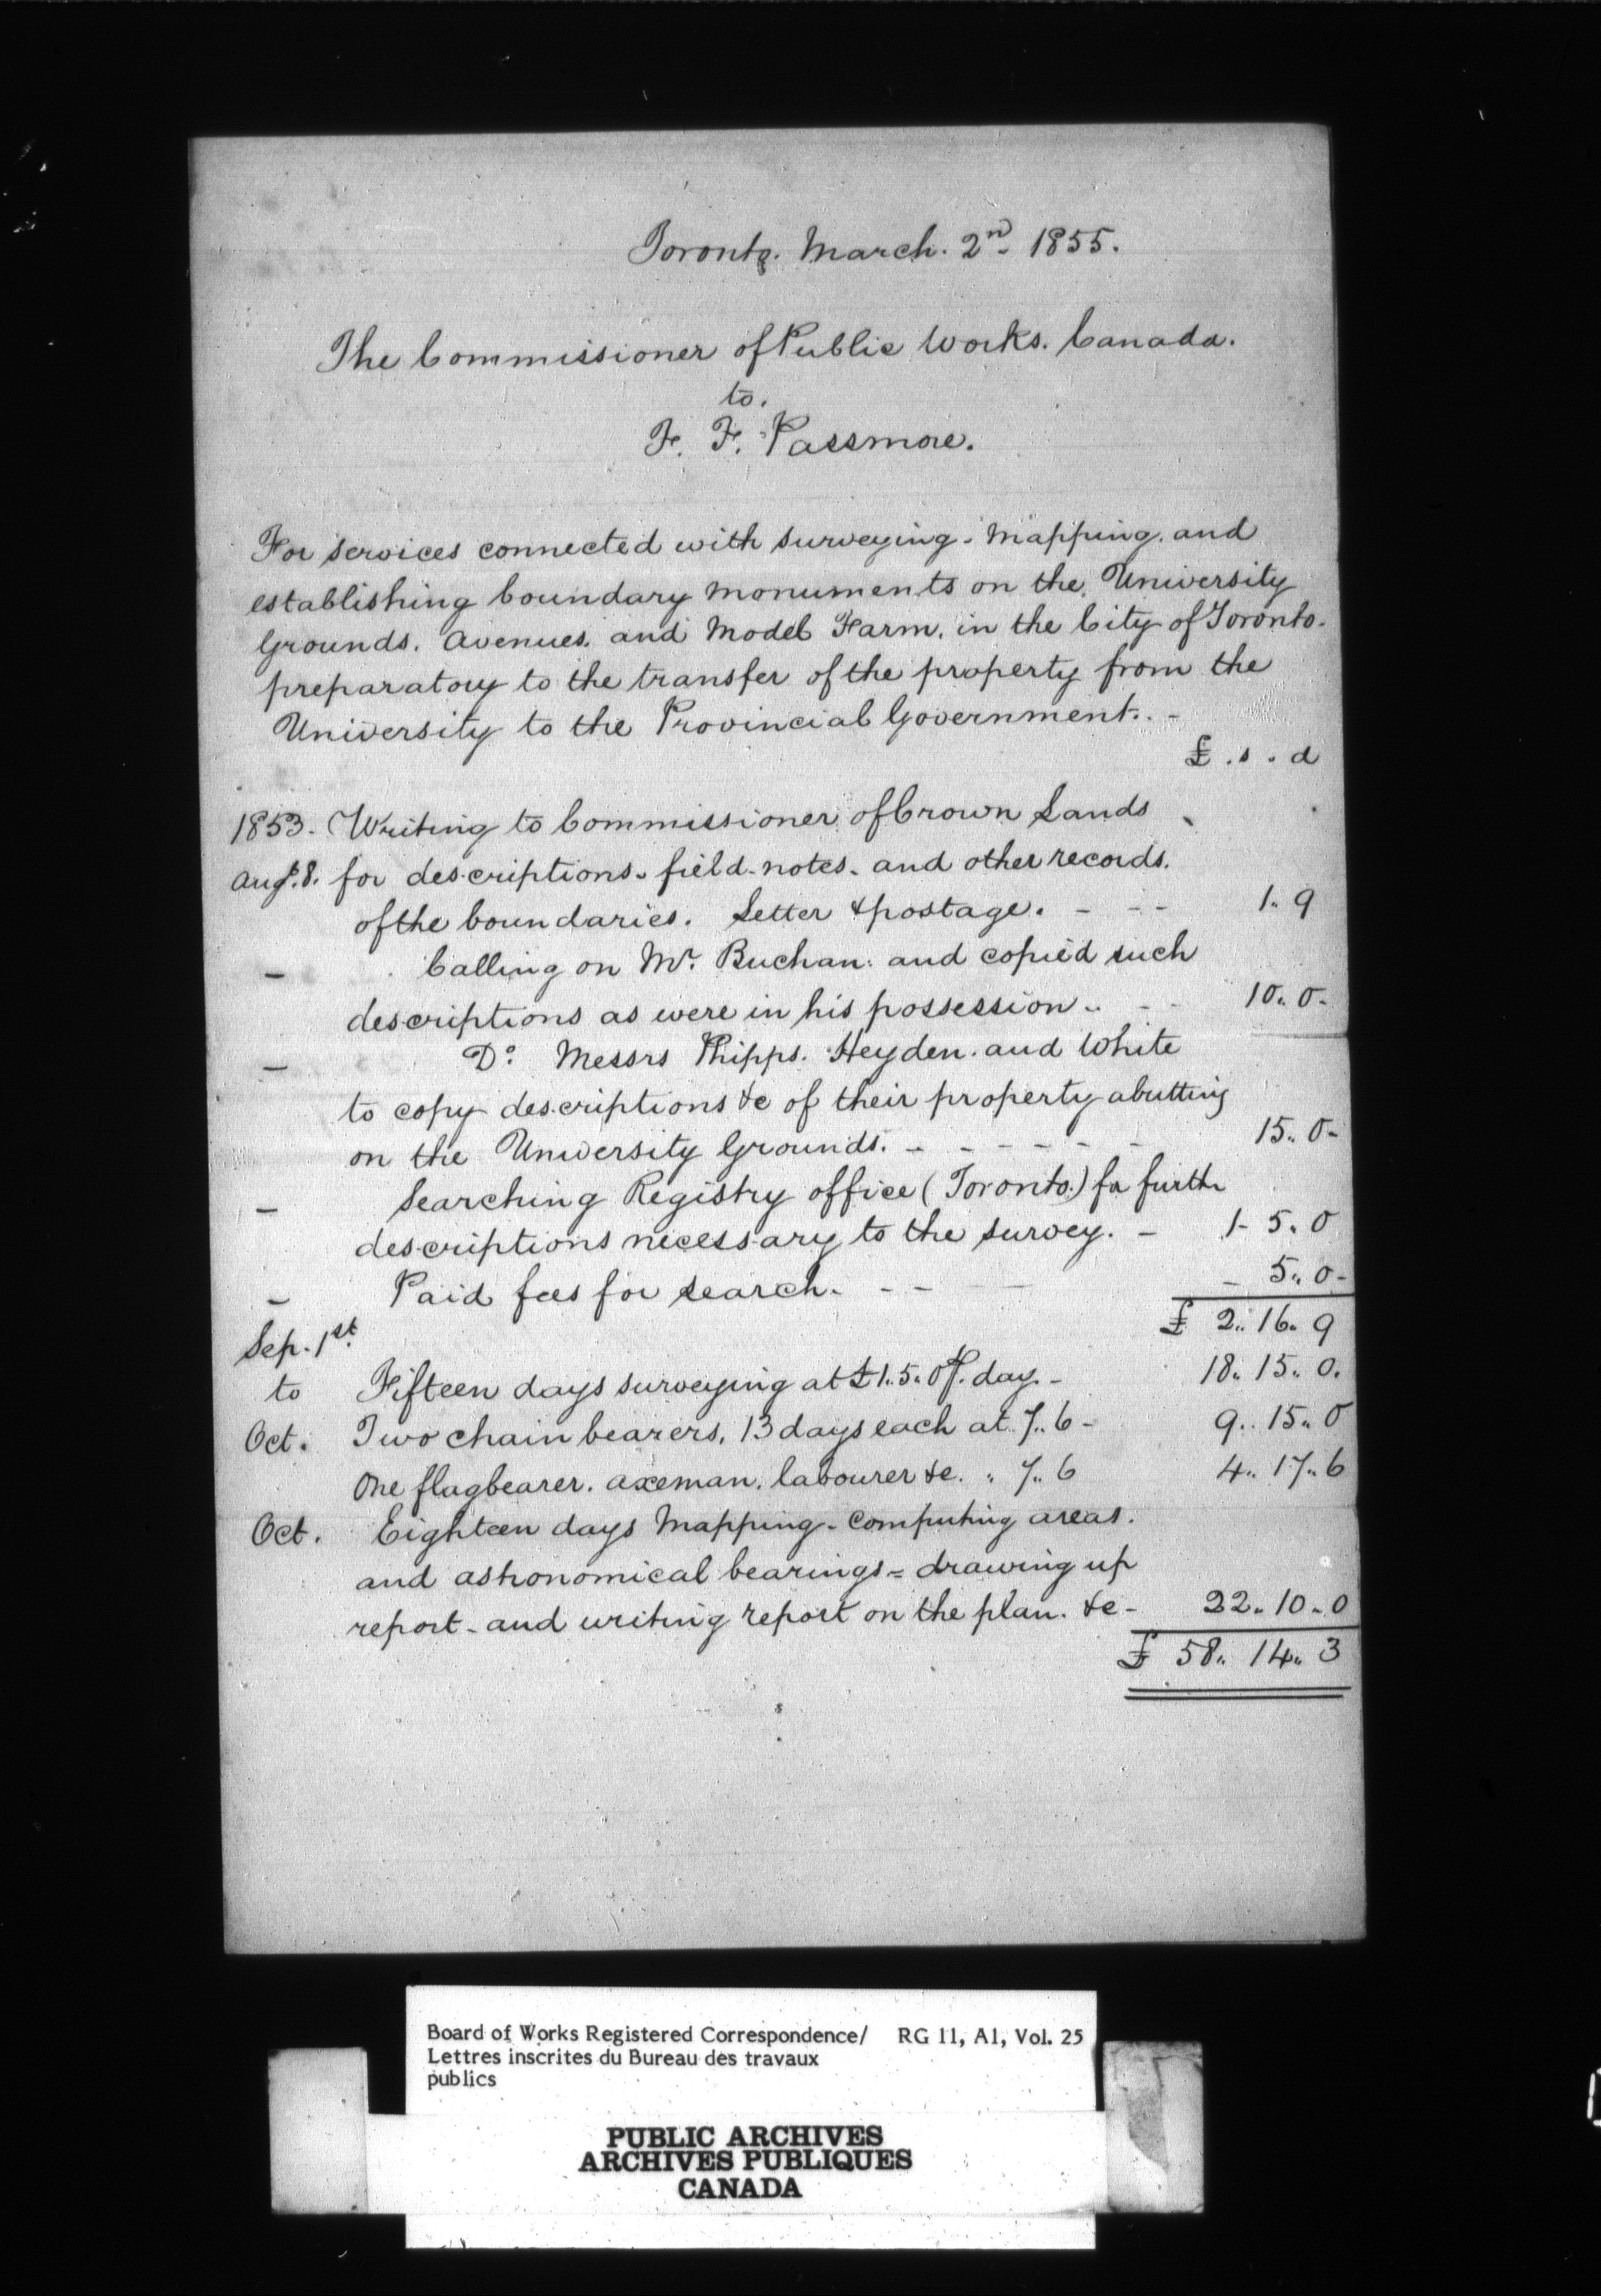 Toronto. March. 2nd 1855.
The Commissioner of Public Works. Canada.
to.
F. F. Passmore.
For services connected with surveying - mapping. and
establishing boundary monuments on the University
Grounds. Avenues. and Model Farm. in the City of Toronto.
preparatory to the transfer of the property from the
University to the Provincial Government. -
£ . s . d
1853. Writing to Commissioner of Crown Lands
Augt. 8. for descriptions - field - notes - and other records.
of the boundaries. Letter & postage. - - - 1 .. 9
- Calling on Mr. Buchan. and copied such
descriptions as were in his possession .. - - 10 .. 0 -
- Do. Messrs Phipps. Heyden. and White
to copy descriptions &c of their property abutting
on the University Grounds. - - - - - - 15 .. 0 -
- Searching Registry office (Toronto.) for furthr
descriptions necessary to the survey. - 1 - 5 .. 0
- Paid fees for search. - - - - 5 .. 0 -
£ 2 .. 16 .. 9
Sep. 1st.
to Fifteen days surveying at £1 .. 5 .. 0 P. day - 18 .. 15 .. 0.
Oct. Two chain bearers, 13 days each at 7 .. 6 - 9 .. 15 .. 0
One flagbearer. axeman. labourer &c. " 7 .. 6 4 .. 17 .. 6
Oct. Eighteen days Mapping - Computing areas.
and astronomical bearings = drawing up
report - and writing report on the plan. &c - 22 .. 10 .. 0
£ 58 .. 14 .. 3
Board of Works Registered Correspondence/ RG 11, A1, Vol. 25
Lettres inscrites du Bureau des travaux
publics
PUBLIC ARCHIVES
ARCHIVES PUBLIQUES
CANADA